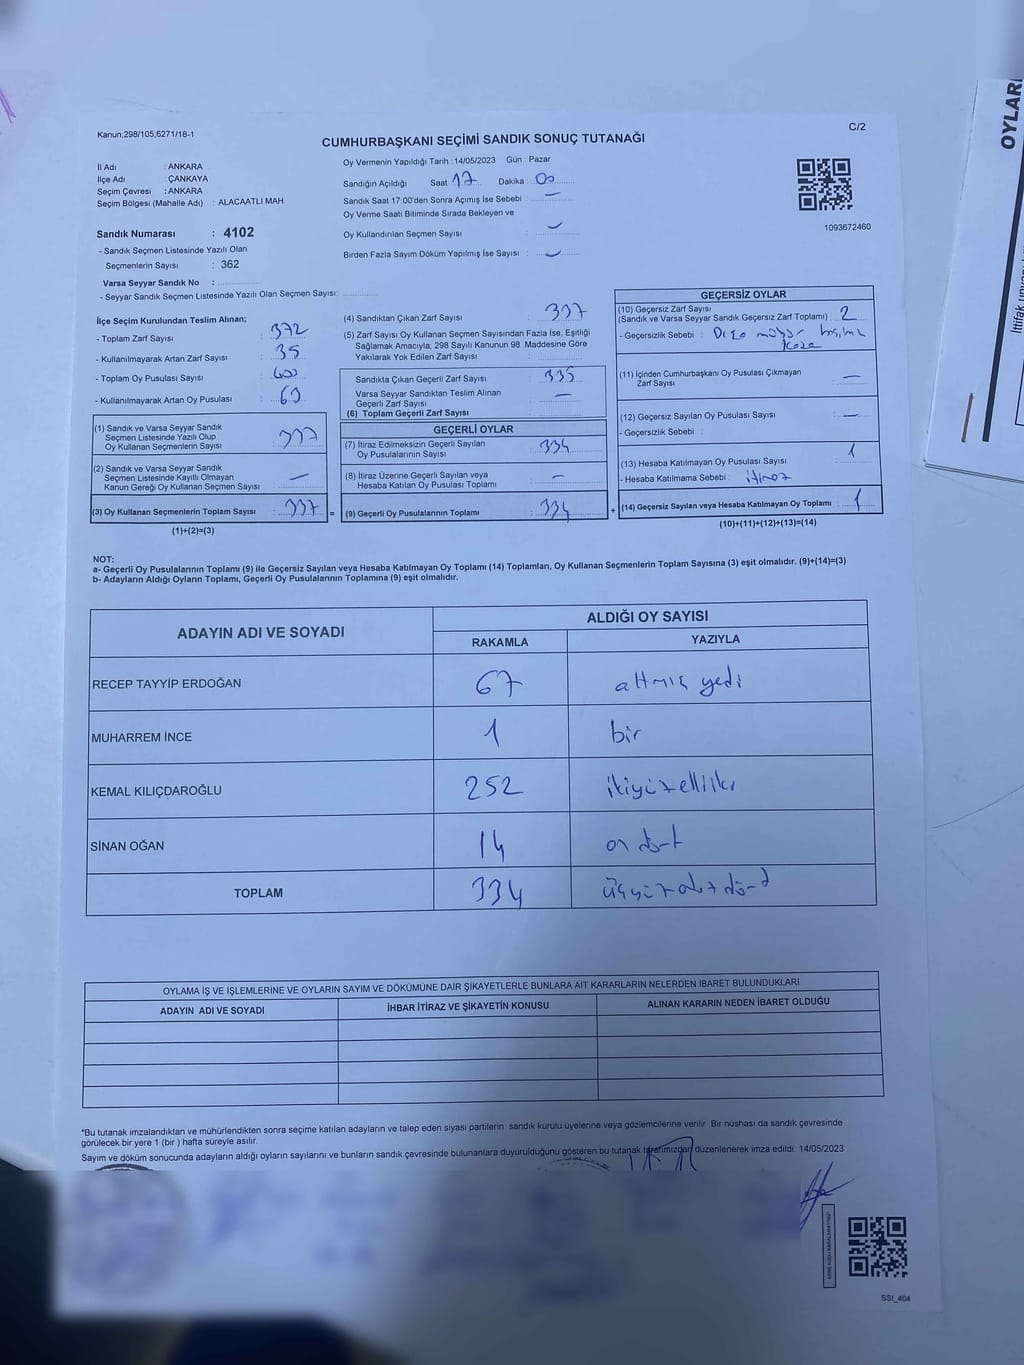 Kanun;298/105;6271/18-1
C/2
CUMHURBAŞKANI SEÇİMİ SANDIK SONUÇ TUTANAĞI
İl Adı : ANKARA
İlçe Adı : ÇANKAYA
Seçim Çevresi : ANKARA
Seçim Bölgesi (Mahalle Adı) : ALACAATLI MAH.
Sandık Numarası : 4102
- Sandık Seçmen Listesinde Yazılı Olan
Seçmenlerin Sayısı : 362
Varsa Seyyar Sandık No :
- Seyyar Sandık Seçmen Listesinde Yazılı Olan Seçmen Sayısı:
Oy Vermenin Yapıldığı Tarih : 14/05/2023 Gün : Pazar
Sandığın Açıldığı Saat 17 Dakika : 00
Sandık Saat 17:00'den Sonra Açımış İse Sebebi : —
Oy Verme Saati Bitiminde Sırada Bekleyen ve
Oy Kullandırılan Seçmen Sayısı : —
Birden Fazla Sayım Döküm Yapılmış İse Sayısı : —
1093672460
İlçe Seçim Kurulundan Teslim Alınan;
- Toplam Zarf Sayısı : 372
- Kullanılmayarak Artan Zarf Sayısı : 35
- Toplam Oy Pusulası Sayısı : 400
- Kullanılmayarak Artan Oy Pusulası : 63
(1) Sandık ve Varsa Seyyar Sandık
Seçmen Listesinde Yazılı Olup
Oy Kullanan Seçmenlerin Sayısı : 337
(2) Sandık ve Varsa Seyyar Sandık
Seçmen Listesinde Kayıtlı Olmayan
Kanun Gereği Oy Kullanan Seçmen Sayısı : —
(3) Oy Kullanan Seçmenlerin Toplam Sayısı : 337 =
(1)+(2)=(3)
(4) Sandıktan Çıkan Zarf Sayısı : 337
(5) Zarf Sayısı Oy Kullanan Seçmen Sayısından Fazla İse, Eşitliği
Sağlamak Amacıyla; 298 Sayılı Kanunun 98. Maddesine Göre
Yakılarak Yok Edilen Zarf Sayısı :
Sandıkta Çıkan Geçerli Zarf Sayısı : 335
Varsa Seyyar Sandıktan Teslim Alınan
Geçerli Zarf Sayısı : —
(6) Toplam Geçerli Zarf Sayısı :
GEÇERLİ OYLAR
(7) İtiraz Edilmeksizin Geçerli Sayılan
Oy Pusulalarının Sayısı : 334
(8) İtiraz Üzerine Geçerli Sayılan veya
Hesaba Katılan Oy Pusulası Toplamı : —
(9) Geçerli Oy Pusulalarının Toplamı : 334 +
GEÇERSİZ OYLAR
(10) Geçersiz Zarf Sayısı
(Sandık ve Varsa Seyyar Sandık Geçersiz Zarf Toplamı) : 2
- Geçersizlik Sebebi :
(11) İçinden Cumhurbaşkanı Oy Pusulası Çıkmayan
Zarf Sayısı : —
(12) Geçersiz Sayılan Oy Pusulası Sayısı : —
- Geçersizlik Sebebi :
(13) Hesaba Katılmayan Oy Pusulası Sayısı : 1
- Hesaba Katılmama Sebebi : itiraz
(14) Geçersiz Sayılan veya Hesaba Katılmayan Oy Toplamı : 1
(10)+(11)+(12)+(13)=(14)
NOT:
a- Geçerli Oy Pusulalarının Toplamı (9) ile Geçersiz Sayılan veya Hesaba Katılmayan Oy Toplamı (14) Toplamları, Oy Kullanan Seçmenlerin Toplam Sayısına (3) eşit olmalıdır. (9)+(14)=(3)
b- Adayların Aldığı Oyların Toplamı, Geçerli Oy Pusulalarının Toplamına (9) eşit olmalıdır.
ADAYIN ADI VE SOYADI
ALDIĞI OY SAYISI
RAKAMLA YAZIYLA
RECEP TAYYİP ERDOĞAN 67 altmış yedi
MUHARREM İNCE 1 bir
KEMAL KILIÇDAROĞLU 252 ikiyüzelliiki
SİNAN OĞAN 14 on dört
TOPLAM 334 üçyüzotuzdörd
OYLAMA İŞ VE İŞLEMLERİNE VE OYLARIN SAYIM VE DÖKÜMÜNE DAİR ŞİKAYETLERLE BUNLARA AİT KARARLARIN NELERDEN İBARET BULUNDUKLARI
ADAYIN ADI VE SOYADI İHBAR İTİRAZ VE ŞİKAYETİN KONUSU ALINAN KARARIN NEDEN İBARET OLDUĞU
*Bu tutanak imzalandıktan ve mühürlendikten sonra seçime katılan adayların ve talep eden siyasi partilerin sandık kurulu üyelerine veya gözlemcilerine verilir. Bir nüshası da sandık çevresinde
görülecek bir yere 1 (bir ) hafta süreyle asılır.
Sayım ve döküm sonucunda adayların aldığı oyların sayılarını ve bunların sandık çevresinde bulunanlara duyurulduğunu gösteren bu tutanak tarafımızdan düzenlenerek imza edildi. 14/05/2023
SSI_404
OYLARI